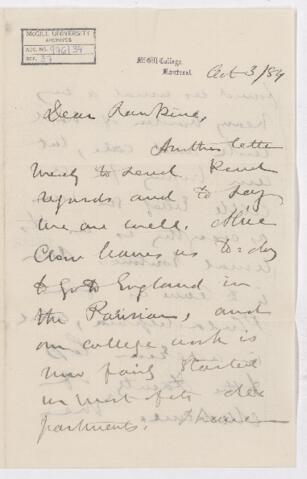 McGILL UNIVERSITY
ARCHIVES
ACC. NO. 976/34
REF. 37
McGill College,
Montreal.
Oct 3/84
Dear Rankine,
Another letter
merely to send kind
regards and to say
we are well. Miss
Clow leaves us to-day
to go to England in
the Parisian, and
our college work is
now fairly started
in most of its de-
partments. I have